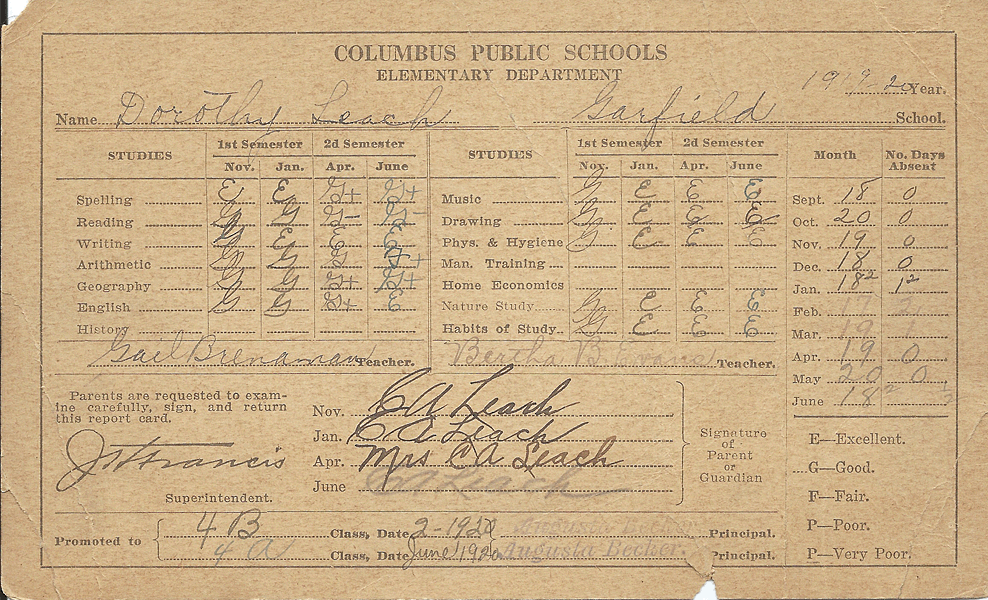 COLUMBUS PUBLIC SCHOOLS
ELEMENTARY DEPARTMENT
1919 20 Year.
Name Dorothy Leach Garfield School.
STUDIES 1st Semester 2d Semester STUDIES 1st Semester 2d Semester Month No. Days Absent
Nov. Jan. Apr. June Nov. Jan. Apr. June
Spelling E E G+ G+ Music G E E E Sept. 18 0
Reading G G G- G- Drawing G E E E Oct. 20 0
Writing G E E E Phys. & Hygiene G E E E Nov. 19 0
Arithmetic G G G G+ Man. Training Dec. 18 0
Geography G G G+ G+ Home Economics Jan. 18² 1²
English G G G+ E Nature Study G E E E Feb.
History Habits of Study G E E E Mar. 19
Gail Brenaman Teacher. Bertha B. Teacher. Apr. 19 0
May 20 0
June 18²
Parents are requested to exam-
ine carefully, sign, and return
this report card.
J H Francis
Superintendent.
Nov. C A Leach
Jan. C A Leach
Apr. Mrs C A Leach
June C A Leach
Signature
of
Parent
or
Guardian
E—Excellent.
G—Good.
F—Fair.
P—Poor.
P—Very Poor.
Promoted to
4 B Class, Date 2-1920 Principal.
4 A Class, Date June 1920 Augusta Becker. Principal.